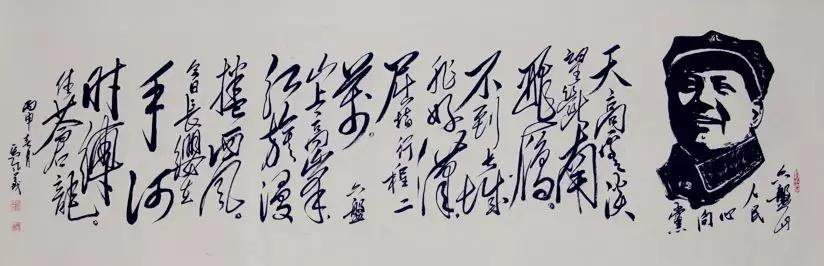 六盤山
人民
心
向
黨
天高雲淡
望斷南
飛雁。
不到長城
非好漢
屈指行程二
萬。六盤
山上高峰
红旗漫
捲西風。
今日長纓在
手何
時縛
住蒼龍。
丙申春月